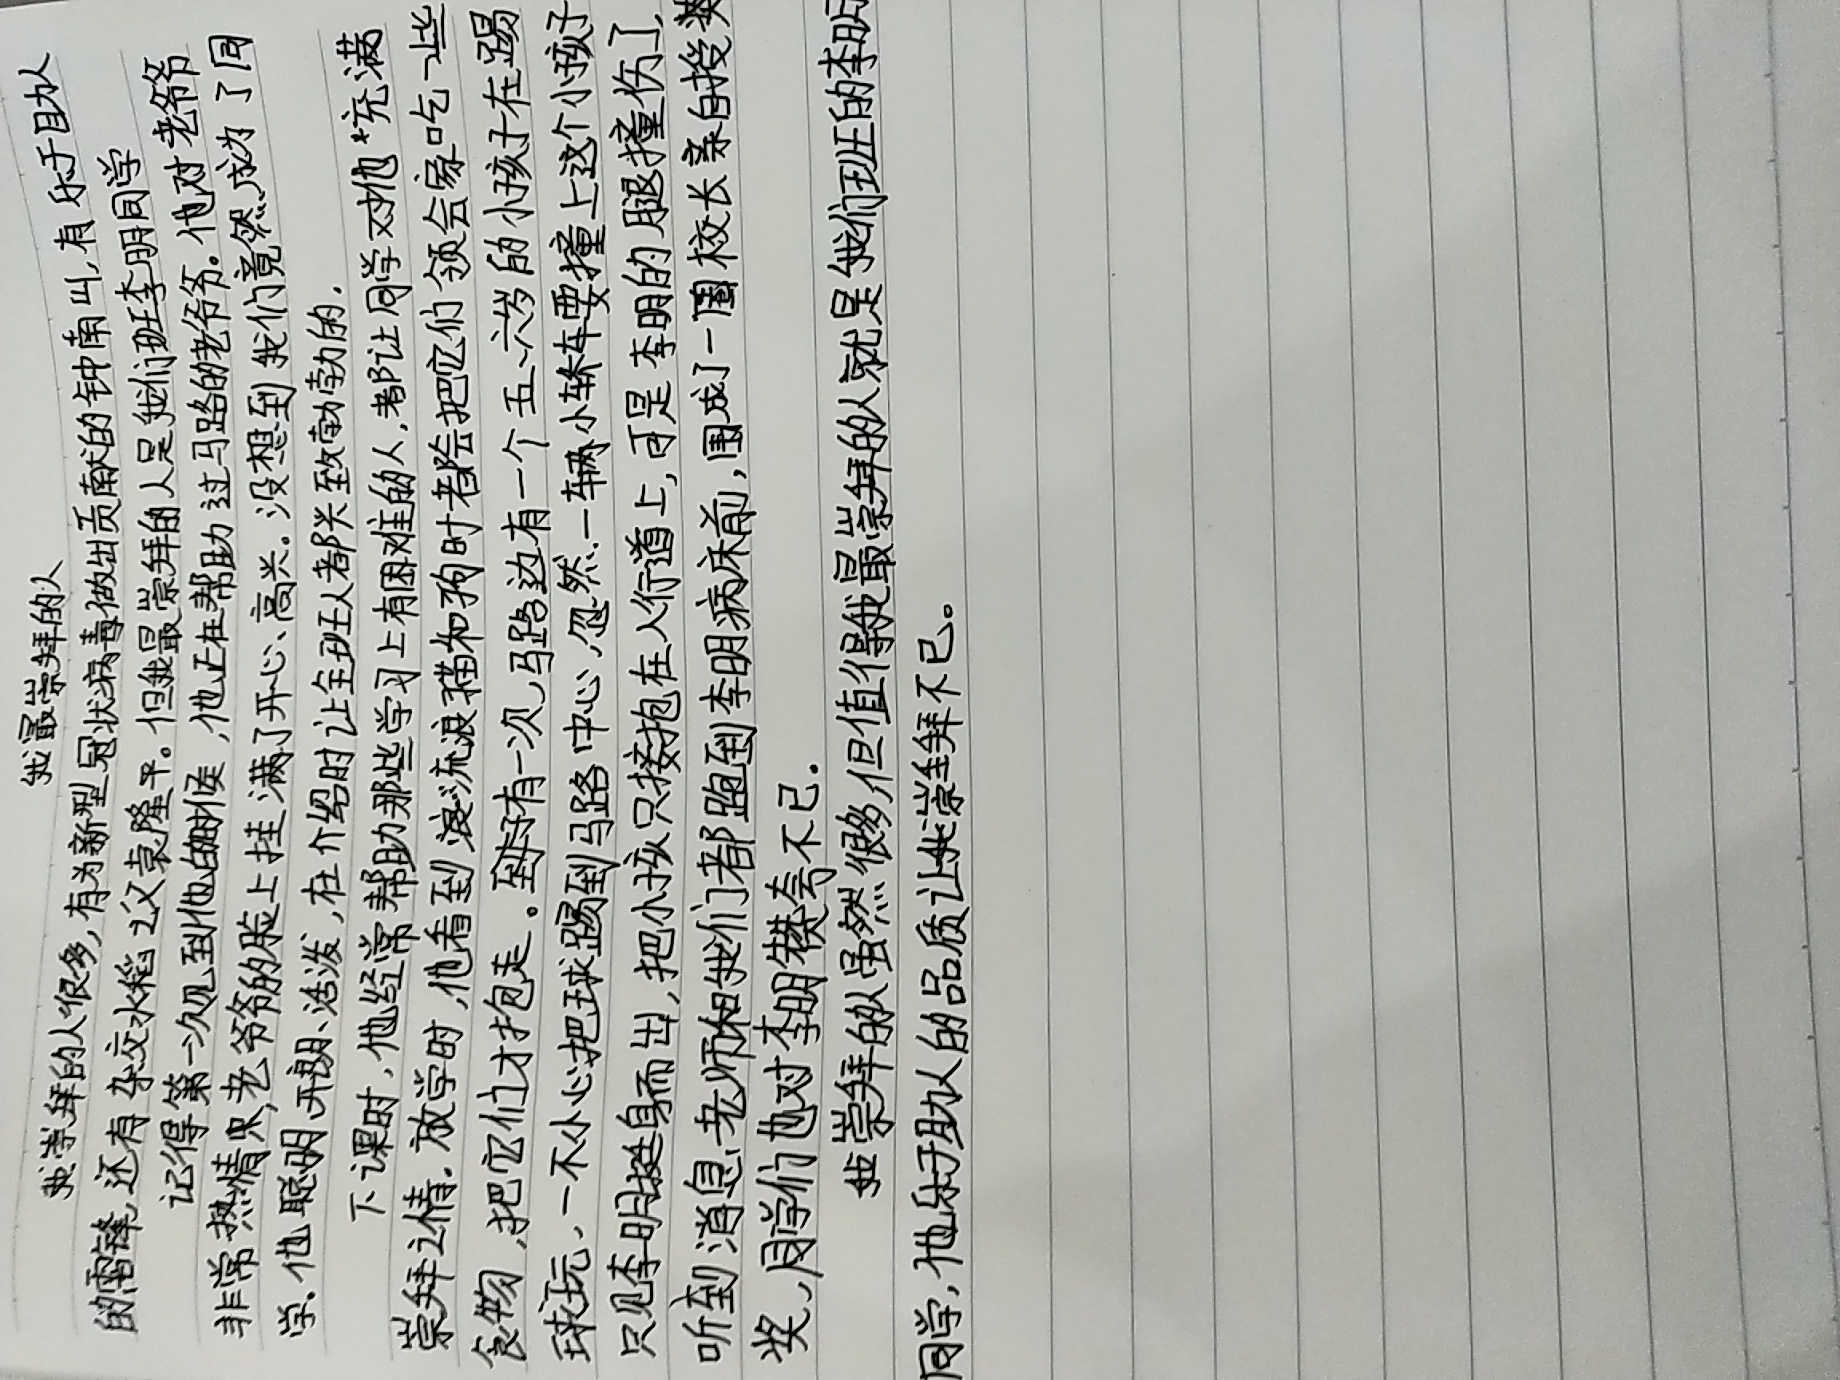 我最崇拜的人
我崇拜的人很多,有为新型冠状病毒做出贡献的钟南山,有乐于助人
的雷锋,还有杂交水稻之父袁隆平。但我最崇拜的人是我们班李明同学
记得第一次见到他的时候,他正在帮助过马路的老爷爷。他对老爷爷
非常热情果,老爷爷的脸上挂满了开心、高兴。没想到我们竟然成为了同
学。他聪明、开朗、活泼,在介绍时让全班人都兴致勃勃的.
下课时,他经常帮助那些学习上有困难的人,都让同学对他“充满
崇拜之情.放学时,他看到流浪猫和狗时都会把它们领会家吃一些
食物,把它们才抱走。有一次,马路边有一个五、六岁的小孩子在踢
球玩,一不小心把球踢到马路中心,忽然一辆小轿车要撞上这个小孩子
只见李明挺身而出,把小孩只接抱在人行道上,可是李明的腿撞伤了,
听到消息,老师和我们都跑到李明病床前,围成了一圈校长亲自授奖
奖,同学们也对李明赞夸不已.
我崇拜的人虽然很多,但值得我最崇拜的人就是我们班的李明
同学,他乐于助人的品质让我崇拜不已。